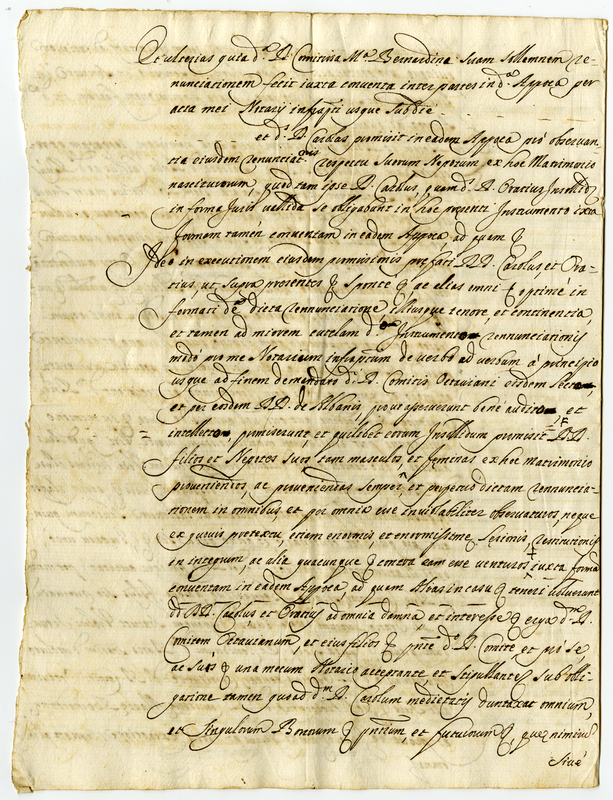 Et ulterius quia d.ª D. Comitissa M.ª Bernardina suam sollemnem re-
nunciationem fecit iuxta conventa inter partes in d.ª Apoca per
acta mei Notarij infra(pti) usque sub die
et d. D. Carolus promisit in eadem Apoca pro observan-
tia eiusdem renunciat.nis respectu suorum Nepotum ex hoc Matrimonio
nasciturorum, quod tam ipse D. Carolus, quam d. D. Oratius Insolidũ
in forma Juris valida se obligabunt in hoc presenti Instrumento iuxta
formam tamen conventam in eadem Apoca ad quam &
Ideo in executionem eiusdem promissionis prefati DD. Carolus et Ora-
tius, ut supra presentes & sponte & ac alias omni & optime in
formati de dicta renunciatione, illiusque tenore, et continentia,
et tamen ad maiorem cautelam d. Instrumento renunciationis
modo per me Notarium infraptum de verbo ad verbum a principio
usque ad finem de mandato d. D. Comitis Octaviani eisdem
et per eosdem DD. de Albanis, prout asseruerunt bene audito et
intellecto, promiserunt et quilibet eorum Insolidum promisit DD.
filios et Nepotes suos tam masculos, et feminas ex hoc Matrimonio
provenientes, ac proventuros semper, et perpetuo dictam renuncia-
tionem in omnibus, et per omnia eius inviolabiliter observaturos, neque
ex quovis pretextu, etiam enormis et enormissime lesionis, restitutionis
in integrum, ac alia quacunque & contra eam esse venturos iuxta formã
conventam in eadem Apoca, ad quam alias in casu & teneri voluerunt
dd. DD. Carolus et Oratius ad omnia damna et interesse & erga d.m D.
Comitem Octavianum, et eius filios & pnte d. D. Comite, et pro se
ac suis & una mecum Notario acceptante, et stipulante, sub obli-
gatione tamen quoad d.m D. Carolum medietatis duntaxat omnium,
et singulorum Bonorum & pntium, et futurorum &, que nimirum
sive